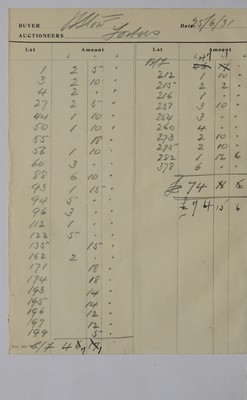 BUYER
AUCTIONEERS Fosters
Date 25/6/31
Lot Amount
£ s. d.
1 2 5 "
3 2 10 "
4 2 " "
27 2 5 "
44 1 10 "
50 1 10 "
55 18 "
58 1 10 "
60 3 " "
88 6 10 "
93 1 15 "
94 5 " "
96 3 " "
112 1 " "
122 5 " "
135 15 "
162 2 " "
171 18 "
174 18 "
193 14 "
195 14 "
196 12 "
197 12 "
199 5 "
Lot Amount
£ s. d.
B/F
212 1 10 "
215 2 2 "
216 1 " "
253 3 "
260 4 " "
273 2 10 "
275 2 10 "
282 1 12 6
378 6 " "
£ 74 6
£ 74 15 6